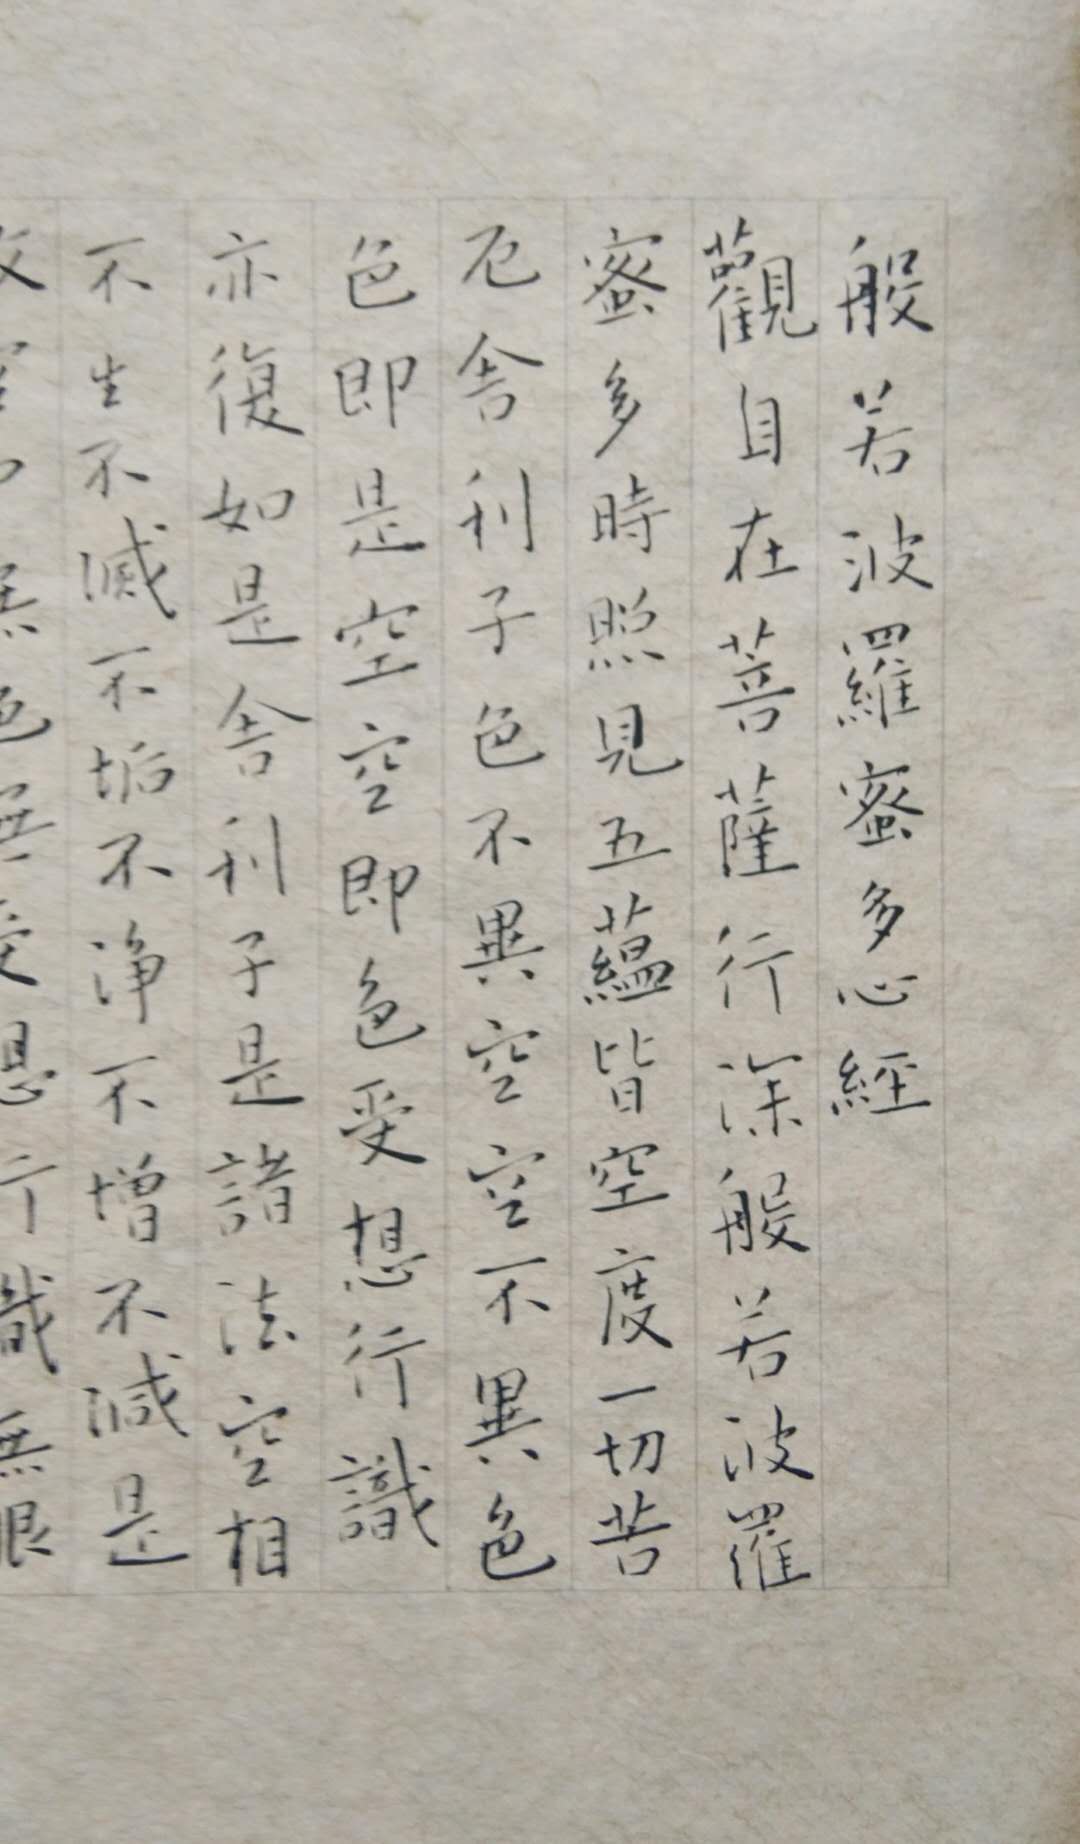 般若波羅蜜多心經
觀自在菩薩行深般若波羅
蜜多時照見五蘊皆空度一切苦
厄舍利子色不異空空不異色
色即是空空即色受想行識
亦復如是舍利子是諸法空相
不生不滅不垢不淨不增不減是
故空中無色無受想行識無眼